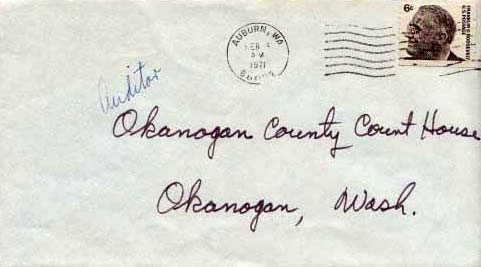 AUBURN, WA
FEB
AM
1971
6¢
FRANKLIN D. ROOSEVELT
U.S. POSTAGE
Auditor
Okanogan County Court House
Okanogan, Wash.